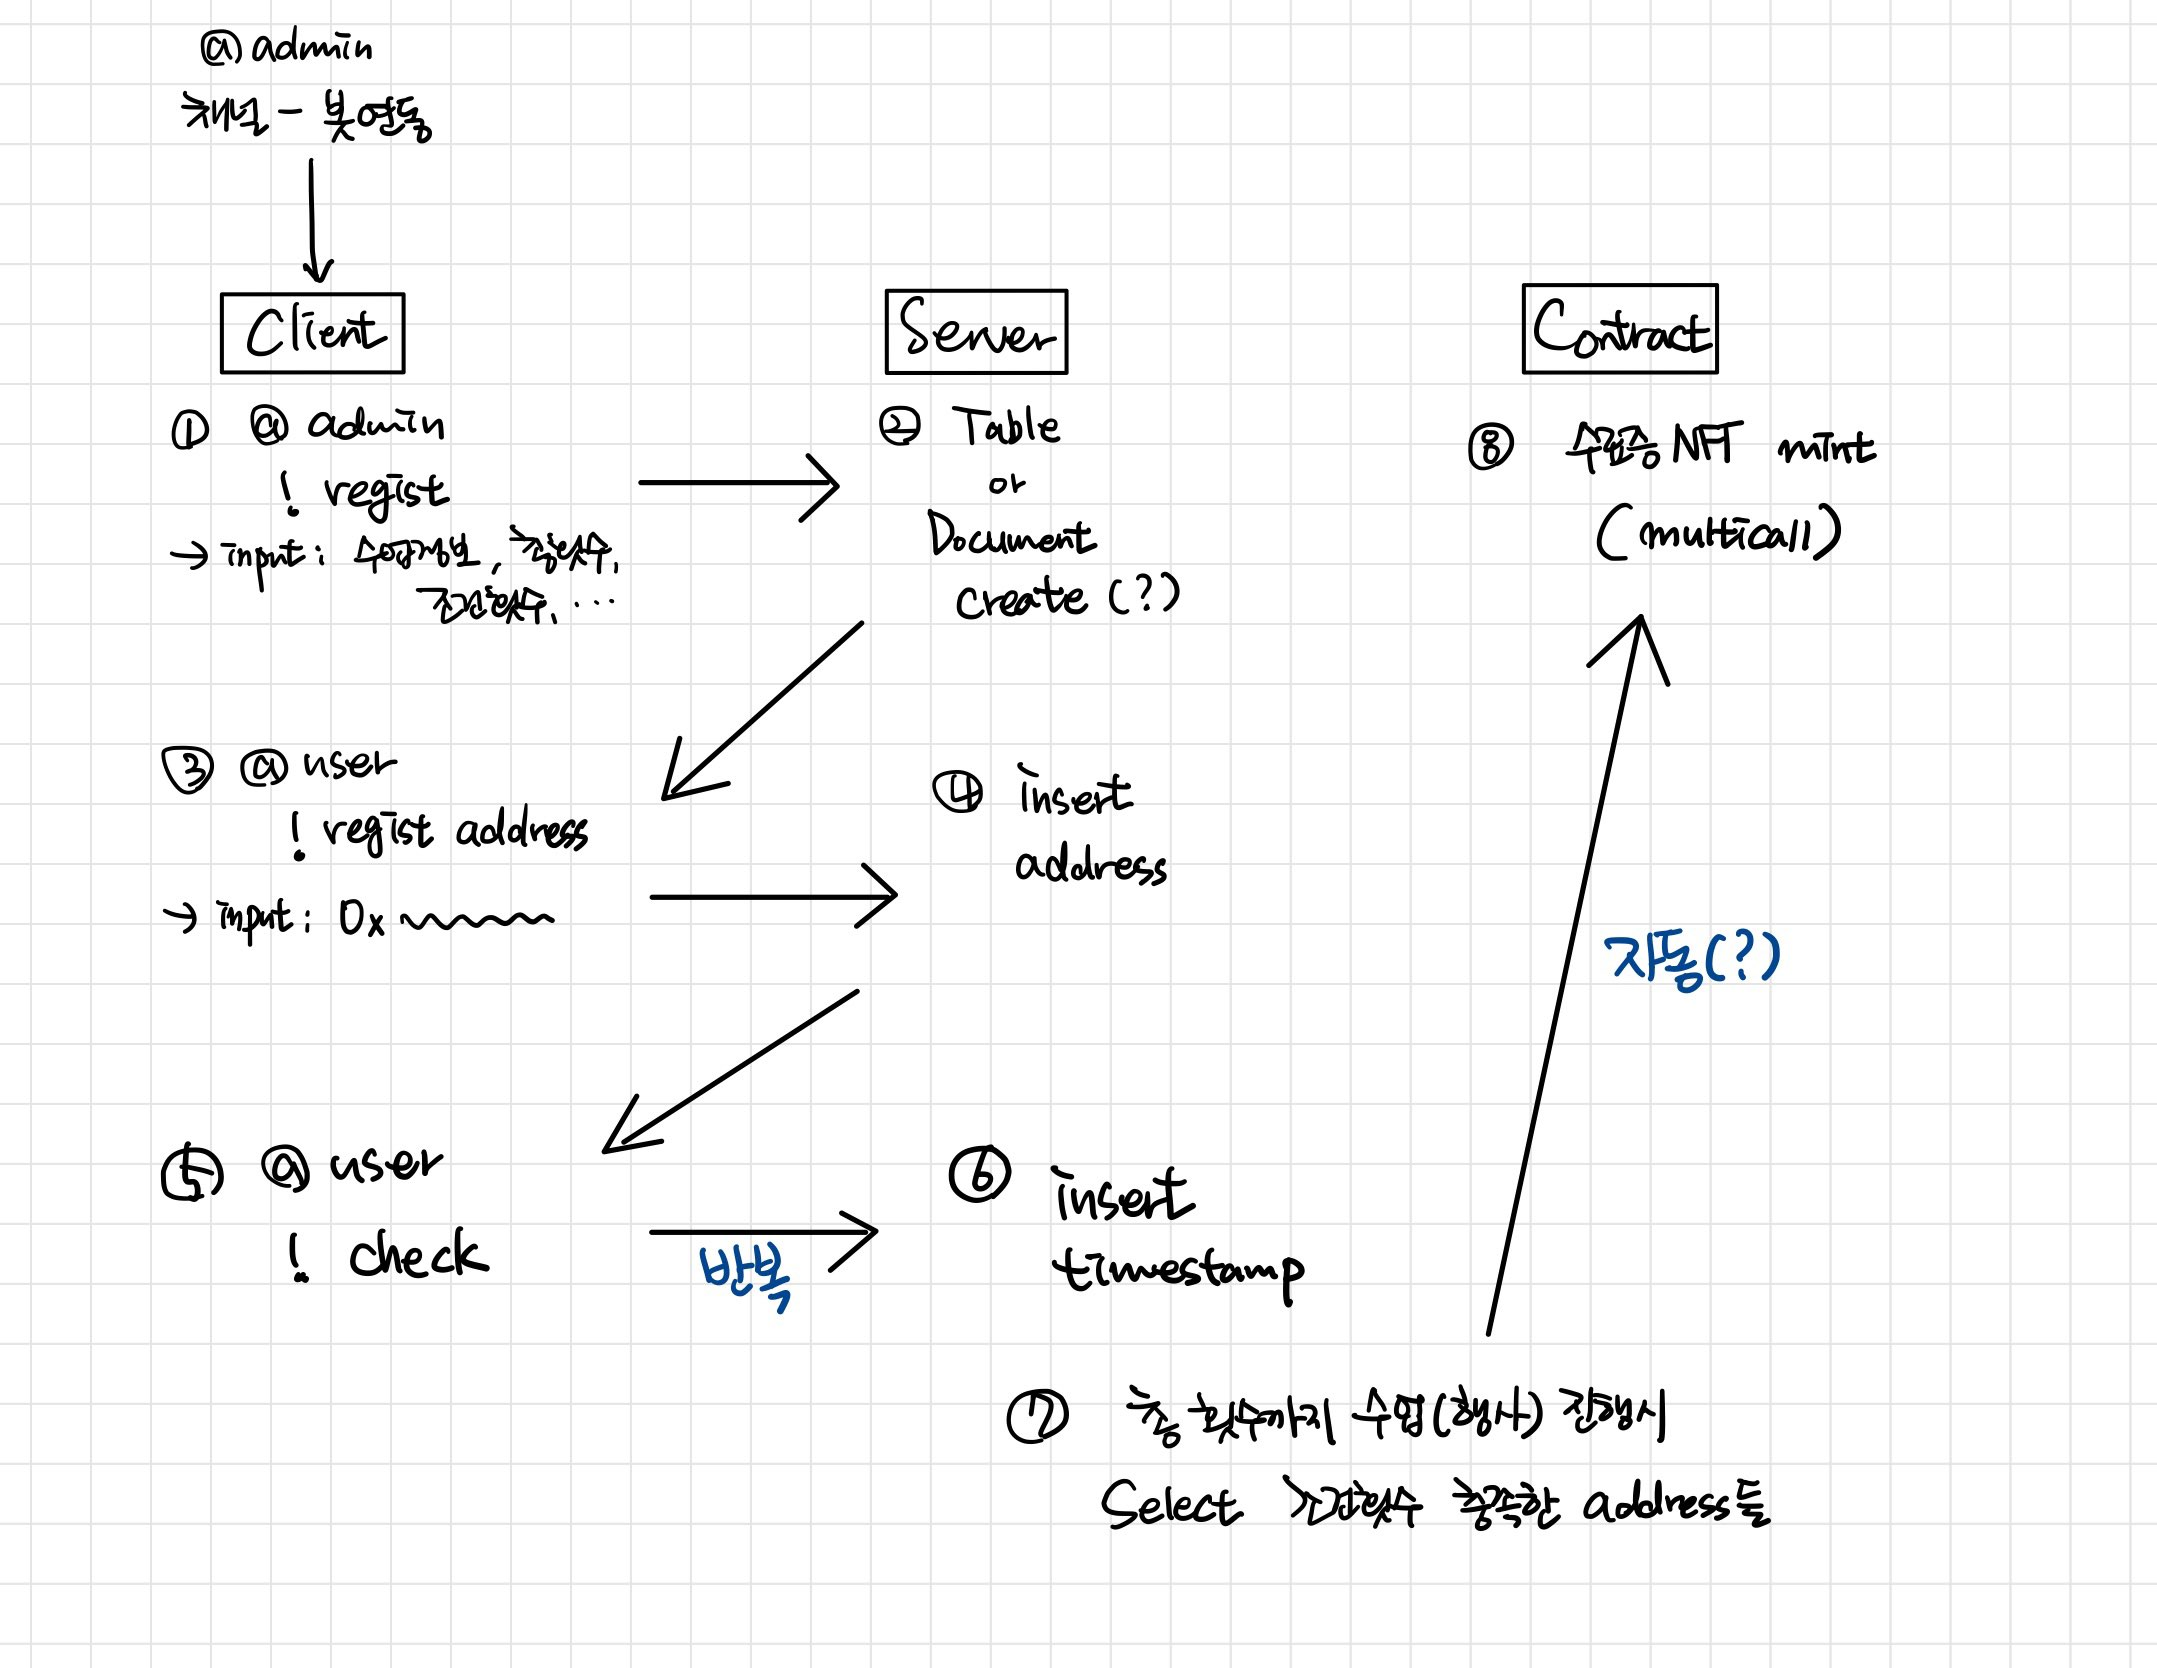 @admin
채널 - 봇연동
Client
① @ admin
! regist
→ input : 수업명, 총횟수,
최소횟수, ...
Server
② Table
or
Document
create (?)
Contract
⑧ 수료증 NFT mint
(multicall)
③ @ user
! regist address
→ input : 0x
④ insert
address
자동(?)
⑤ @ user
! check
반복
⑥ insert
timestamp
⑦ 총 횟수까지 수업(행사) 진행시
Select 충족한 address들